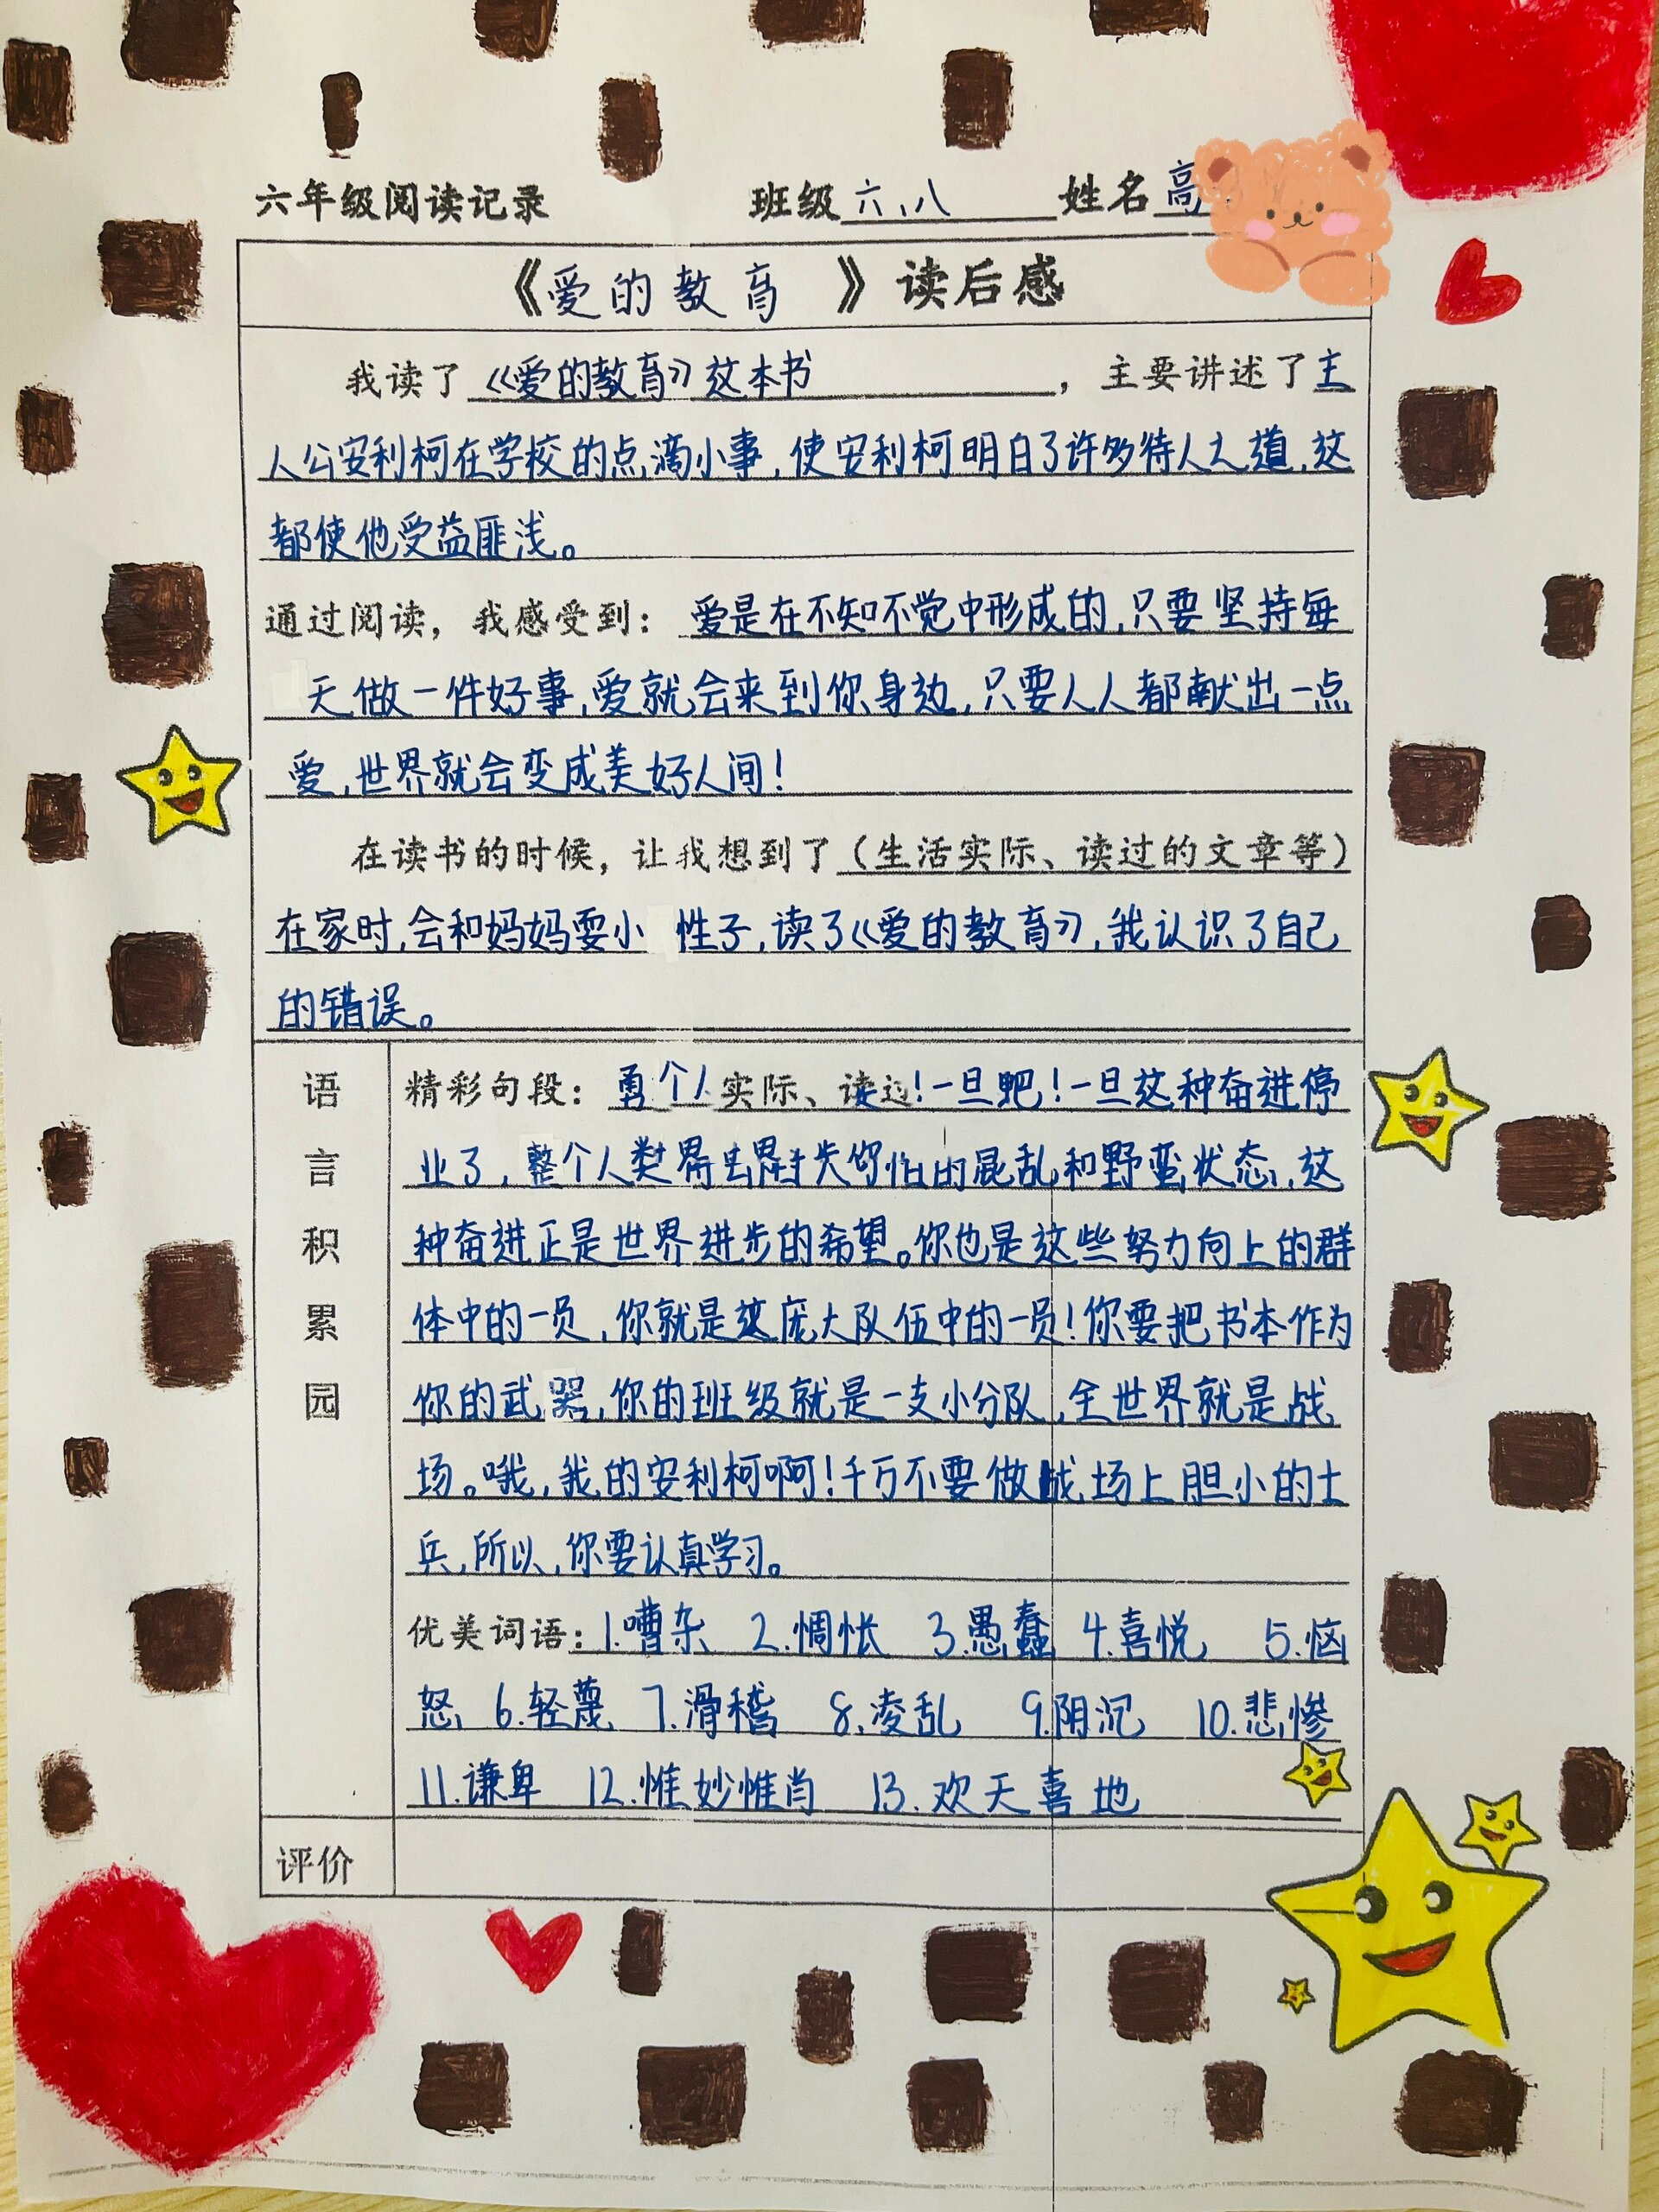 六年级阅读记录 班级六、八 姓名高
《爱的教育》读后感
我读了《爱的教育》这本书，主要讲述了主
人公安利柯在学校的点滴小事，使安利柯明白了许多待人之道，这
都使他受益匪浅。
通过阅读，我感受到：爱是在不知不觉中形成的，只要坚持每
天做一件好事，爱就会来到你身边，只要人人都献出一点
爱，世界就会变成美好人间！
在读书的时候，让我想到了（生活实际、读过的文章等）
在家时，会和妈妈耍小性子，读了《爱的教育》，我认识了自己
的错误。
语言积累园
精彩句段：勇个人实际、读过！一旦吧！一旦这种奋进停
业了，整个人类混乱和野蛮状态，这
种奋进正是世界进步的希望。你也是这些努力向上的群
体中的一员，你就是这庞大队伍中的一员！你要把书本作为
你的武器，你的班级就是一支小分队，全世界就是战
场。哦，我的安利柯啊！千万不要做战场上胆小的士
兵，所以，你要认真学习。
优美词语：1.嘈杂 2.惆怅 3.愚蠢 4.喜悦 5.恼
怒 6.轻蔑 7.滑稽 8.凌乱 9.阴沉 10.悲惨
11.谦卑 12.惟妙惟肖 13.欢天喜地
评价